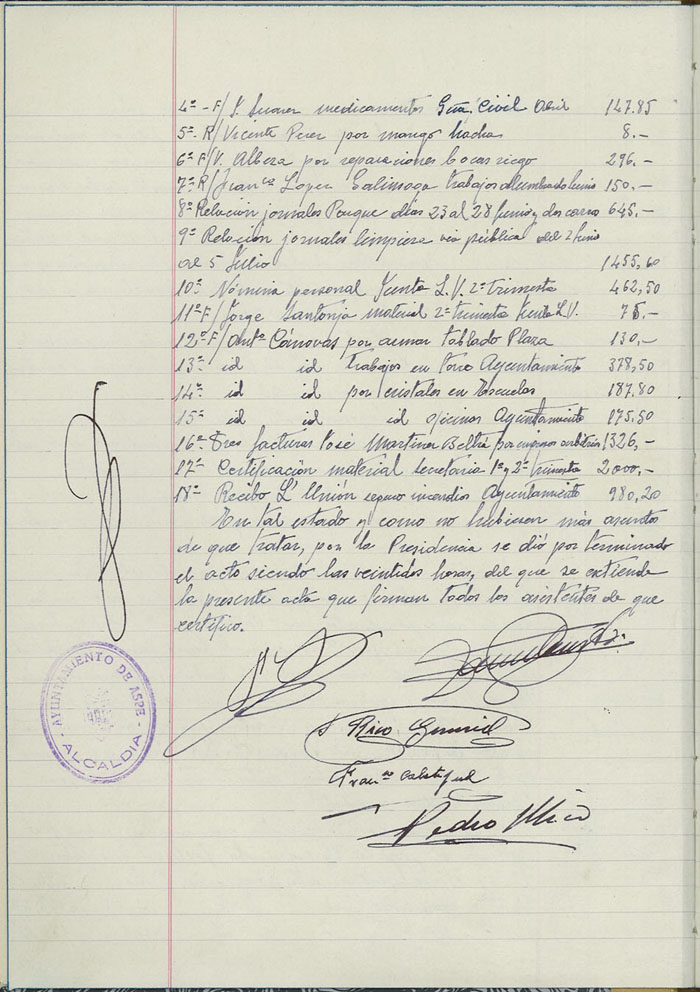 4º - F/ S. Suarez medicamentos Gua. Civil Abril 147.85
5º- R/ Vicente Perez por mango hachas 8.-
6º F/ V. Albeza por reparaciones bocas riego 296.-
7º R/ Franco Lopez Galinsoga trabajos alumbrado Junio 150.-
8º Relación jornales Parque días 23 al 28 Junio y dos carros 645.-
9º Relación jornales limpieza via pública del Junio
al 5 Julio 1455,60
10º- Nómina personal Junta L.V. 2º Trimestre 462,50
11º F/ Jorge Santonja material 2º trimestre Junta L.V. 75.-
12º F/ Antº Cánovas por armar tablado Plaza 130,-
13º- id id trabajos en torre Ayuntamiento 378,50
14º- id id por cristales en Escuelas 187.80
15º- id id id oficinas Ayuntamiento 175.50
16º- Tres facturas José Martinez Beltrá por arbitrios 1326,-
17º- Certificación material secretaria 1º y 2º trimestre 2000,-
18º- Recibo L'Unión seguro incendios Ayuntamiento 980,20
En tal estado y como no hubiesen más asuntos
de que tratar, por la Presidencia se dió por terminado
el acto siendo las veintidos horas, del que se extiende
la presente acta que firman todos los asistentes de que
certifico.
AYUNTAMIENTO DE ASPE
ALCALDIA
Rico
Franco Calatayud
Pedro Mico